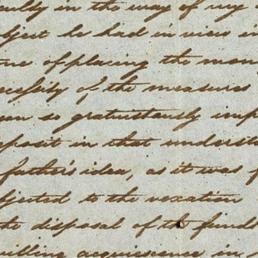 in the way of my
he had in view in
of placing the mon
cessity of the measures
so gratuitously imp
posit in that underst
father's idea, as it was f
bjected to the vexation
the disposal of the funds
acquiescence in